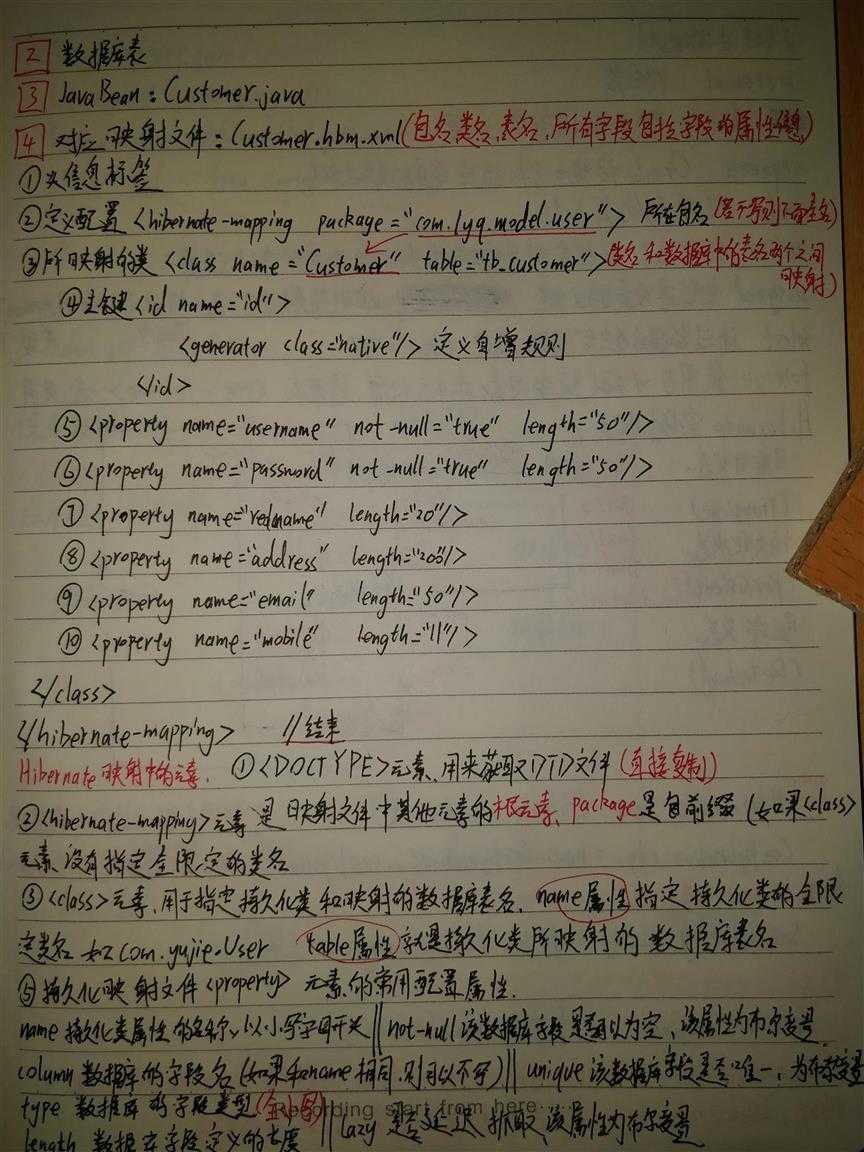 2 数据库表
3 JavaBean：Customer.java
4 对应映射文件：Customer.hbm.xml(包名,类名,表名,所有字段包括字段的属性信息)
①头信息标签
②定义配置<hibernate-mapping package="com.lyq.model.user"> 所在包名(若不写则下面全名)
③所映射的类<class name="Customer" table="tb_customer">(类名和数据库中的表名两个之间映射)
④主键<id name="id">
<generator class="native"/> 定义自增规则
</id>
⑤<property name="username" not-null="true" length="50"/>
⑥<property name="password" not-null="true" length="50"/>
⑦<property name="realname" length="20"/>
⑧<property name="address" length="200"/>
⑨<property name="email" length="50"/>
⑩<property name="mobile" length="11"/>
</class>
</hibernate-mapping> //结束
Hibernate映射中的元素. ①<DOCTYPE>元素,用来获取DTD文件(直接复制)
②<hibernate-mapping>元素是映射文件中其他元素的根元素, package是包前缀(如果<class>
元素没有指定全限定的类名
③<class>元素,用于指定持久化类和映射的数据库表名. name属性指定持久化类的全限
定类名 如com.yujie.User table属性就是持久化类所映射的数据库表名
⑤持久化映射文件<property>元素的常用配置属性.
name 持久化类属性的名称,以小写字母开头||not-null 该数据库字段是否可以为空,该属性为布尔变量
column 数据库的字段名(如果和name相同,则可以不写)||unique 该数据库字段是否唯一,为布尔变量
type 数据库的字段类型(全小写)
recording start from here
length 数据库字段定义的长度||lazy 是否延迟抓取,该属性为布尔变量